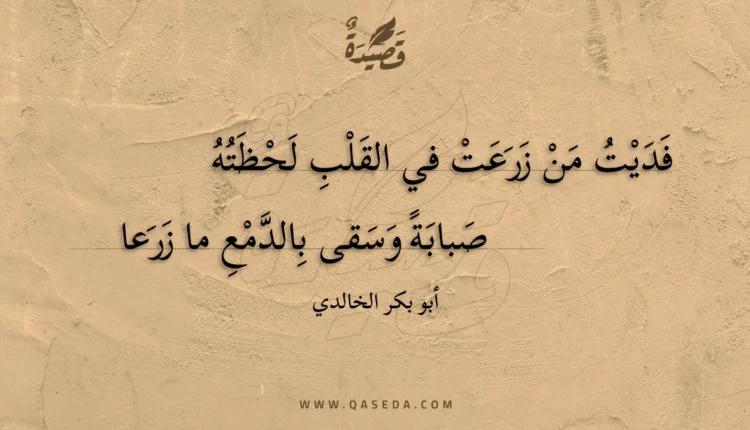 قَصِيْدَةٌ
فَدَيْتُ مَنْ زَرَعَتْ في القَلْبِ لَحْظَتُهُ
صَبابَةً وَسَقى بِالدَّمْعِ ما زَرَعا
أبو بكر الخالدي
WWW.QASEDA.COM